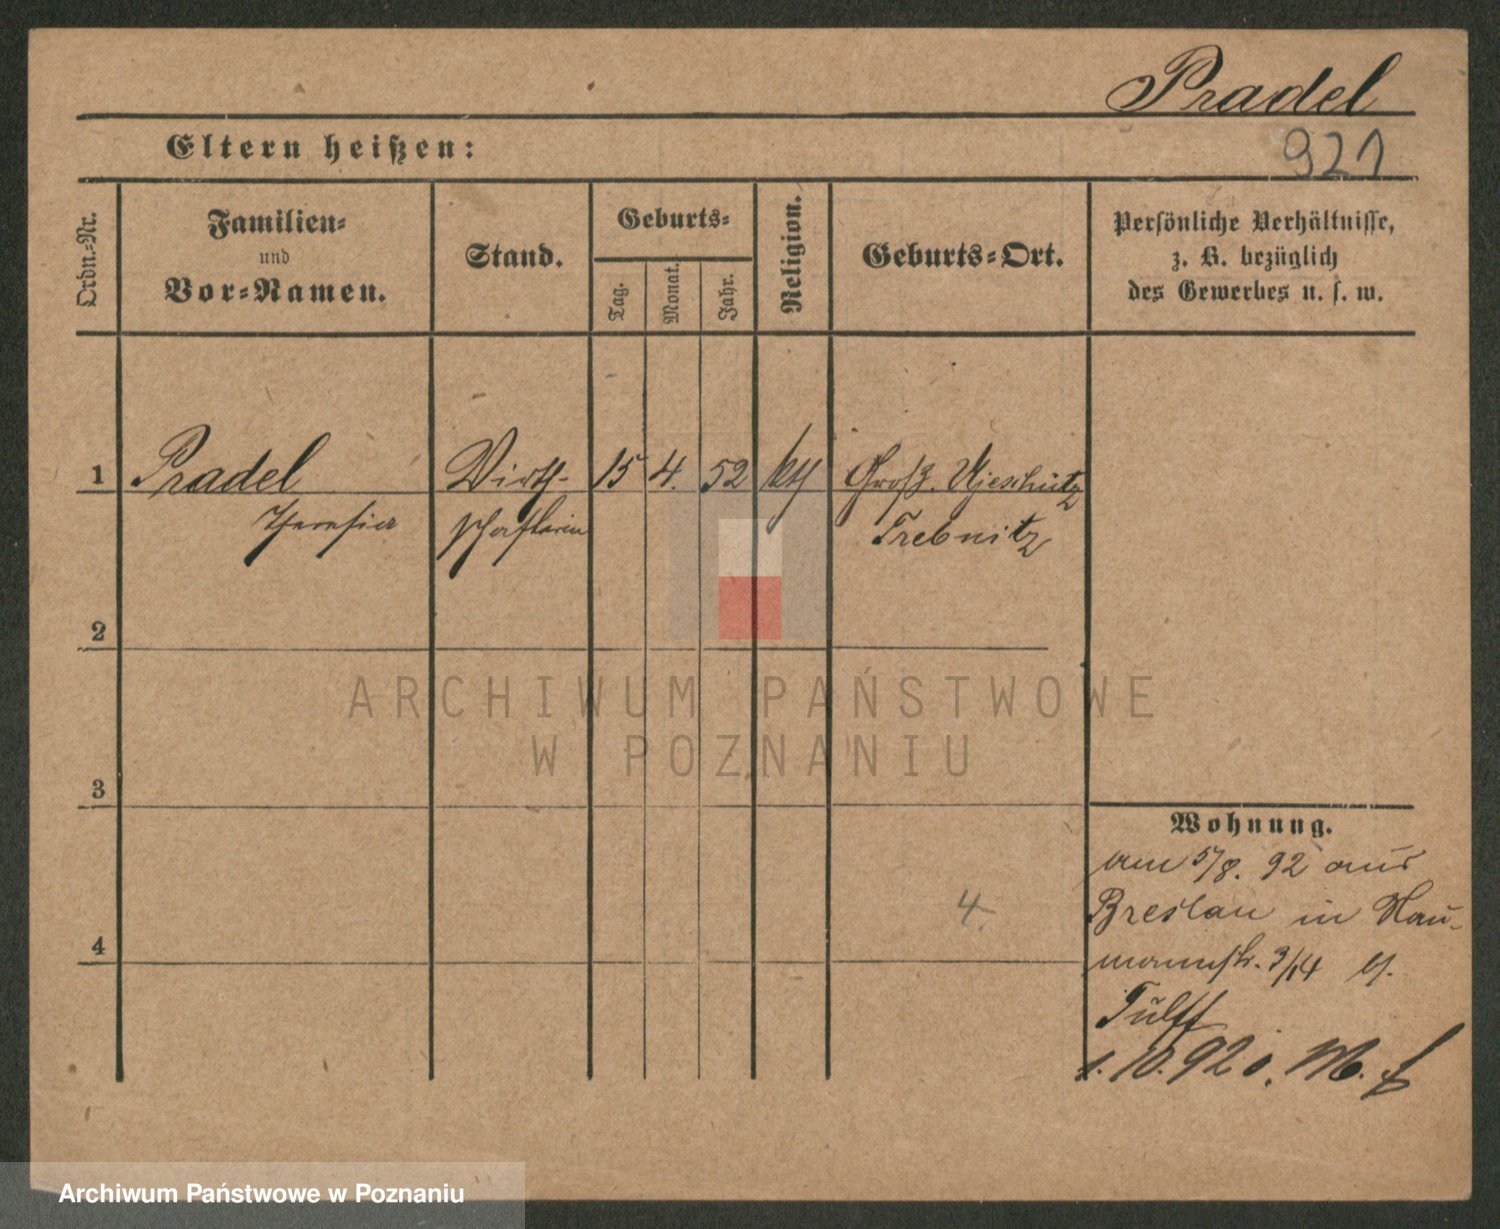 Pradel
Eltern heißen:
921
Ordn.-Nr.
Familien-
und
Vor-Namen.
Stand.
Geburts-
Tag.
Monat.
Jahr.
Religion.
Geburts-Ort.
Persönliche Verhältnisse,
z. B. bezüglich
des Gewerbes u. s. w.
1 Pradel Wirth- 15 4. 52 kth Groß. Ujeschütz
Theresia schafterin Trebnitz
2
3
4
4.
Wohnung.
am 5/8. 92 aus
Breslau in Nau-
mannstr. 3/14 b/.
1. 10. 92
ARCHIWUM PAŃSTWOWE
W POZNANIU
Archiwum Państwowe w Poznaniu